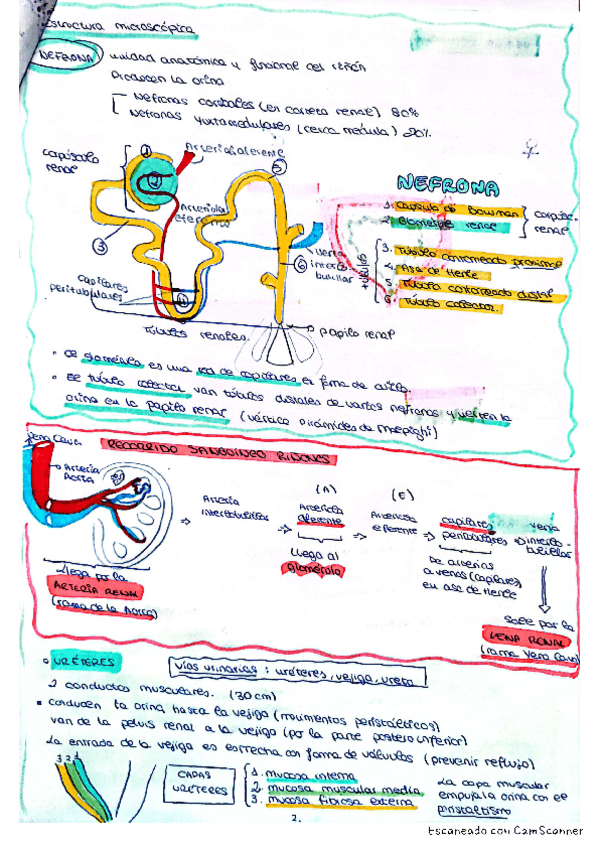 Estructura microscópica
NEFRONA
unidad anatómica y funcional del riñón
Producen la orina
Nefronas corticales (en corteza renal) 80%
Nefronas yuxtamedulares (cerca médula) 20%
Corpúsculo renal
Arteriola aferente
Arteriola eferente
1
2
3
4
5
6
vena interlobulillar
Capilares peritubulares
Túbulos renales
papila renal
NEFRONA
1. Cápsula de Bowman
2. Glomérulo renal
Corpúsc. renal
túbulos
3. Túbulo contorneado proximal
4. Asa de Henle
5. Túbulo contorneado distal
6. Túbulo colector.
• El glomérulo es una red de capilares en forma de ovillo.
• El túbulo colector van túbulos distales de varias nefronas y vierten la
orina en la papila renal (vértice pirámides de Malpighi)
RECORRIDO SANGUÍNEO RIÑONES
Vena Cava
Arteria Aorta
Llega por la
ARTERIA RENAL
(rama de la Aorta)
Arteria interlobulillar
(A)
Arteriola aferente
Llega al
glomérulo
(E)
Arteriola eferente
capilares peritubulares
De arterias
a venas (capilares)
en asa de Henle
vena interlobulillar
Sale por la
VENA RENAL
(rama Vena Cava)
• URÉTERES
Vías urinarias: uréteres, vejiga, uretra
2 conductos musculares. (30cm)
• conducen la orina hasta la vejiga (movimientos peristálticos)
van de la pelvis renal a la vejiga (por la parte postero inferior)
La entrada de la vejiga es estrecha con forma de válvulas (prevenir reflujo)
3 2 1
CAPAS
URÉTERES
1. mucosa interna
2. mucosa muscular media
3. mucosa fibrosa externa
La capa muscular
empuja la orina con el
peristaltismo
2.
Escaneado con CamScanner